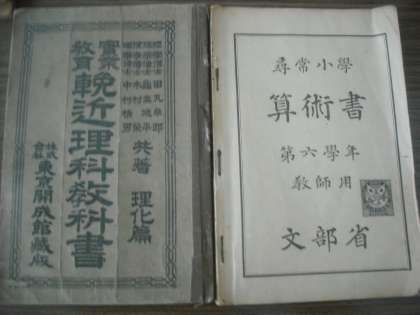 共著
理化篇
實業
教育
輓近理科教科書
株式
會社
東京開成館藏版
尋常小學
算術書
第六學年
教師用
文部省